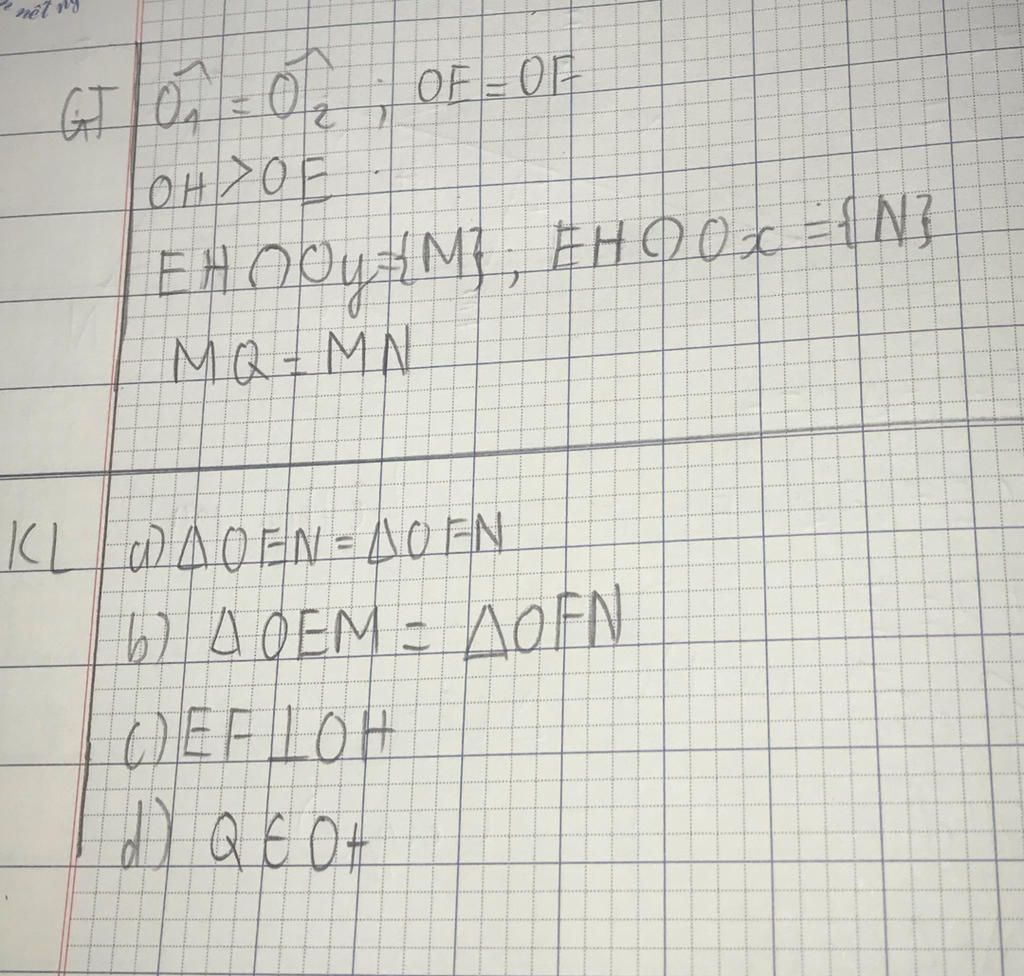 nét
GT Ô₁ = Ô₂ ; OE = OF
OH > OE
EH ∩ Oy = {M} ; EH ∩ Ox = {N}
MQ = MN
KL a) Δ OEN = Δ OFN
b) Δ OEM = Δ OFN
c) EF ⊥ OH
d) Q ∈ Ot